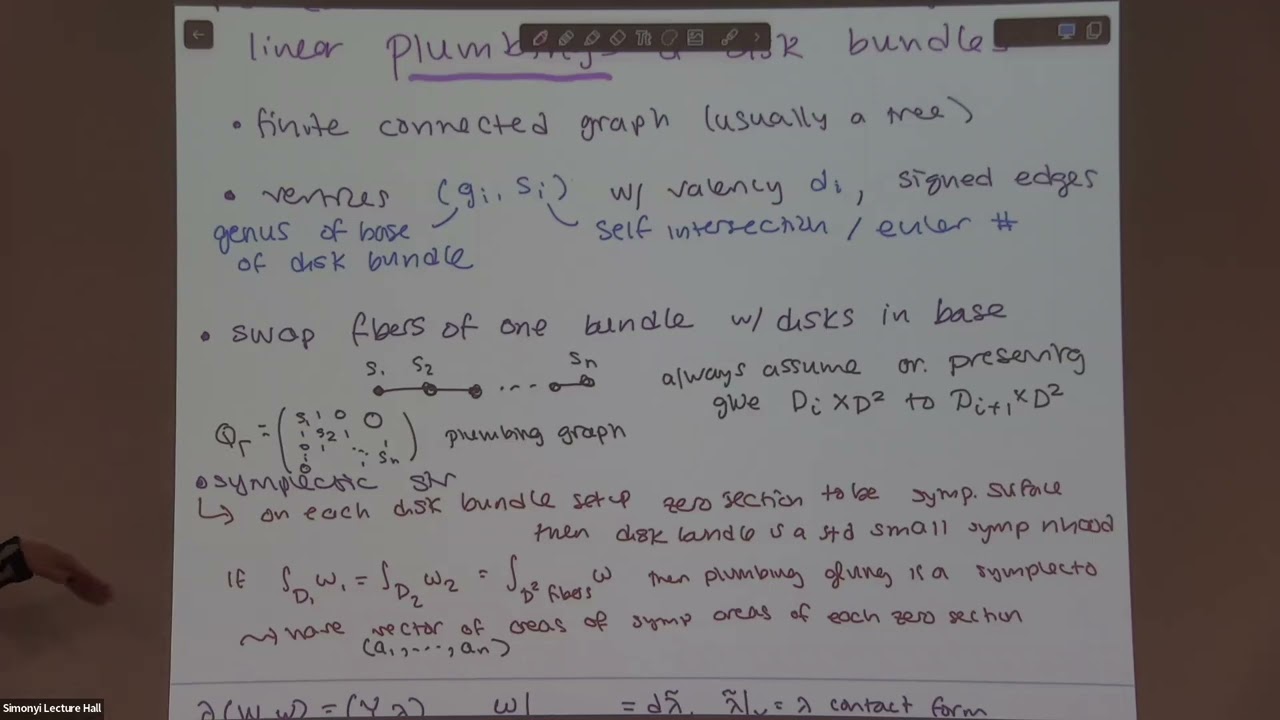 linear plumbings disk bundles
• finite connected graph (usually a tree)
• vertices (gi, si) w/ valency di, signed edges
genus of base of disk bundle
self intersection / euler #
• swap fibers of one bundle w/ disks in base
s1 s2 ... sn
always assume or. preserving
glue Di × D² to Di+1 × D²
QΓ = ( s1 1 0 0 1 s2 1 0 1 ⋱ 1 ⋮ 0 ⋱ sn ) plumbing graph
• symplectic str
↳ on each disk bundle setup zero section to be symp. surface
then disk bundle is a std small symp nhood
If ∫D1 ω1 = ∫D2 ω2 = ∫D² fibers ω then plumbing gluing is a symplecto
⇝ have vector of areas of symp areas of each zero section
(a1, ..., an)
∂(W, ω) = (Y, λ) ω| = dλ̃, λ̃|Y = λ contact form
Simonyi Lecture Hall